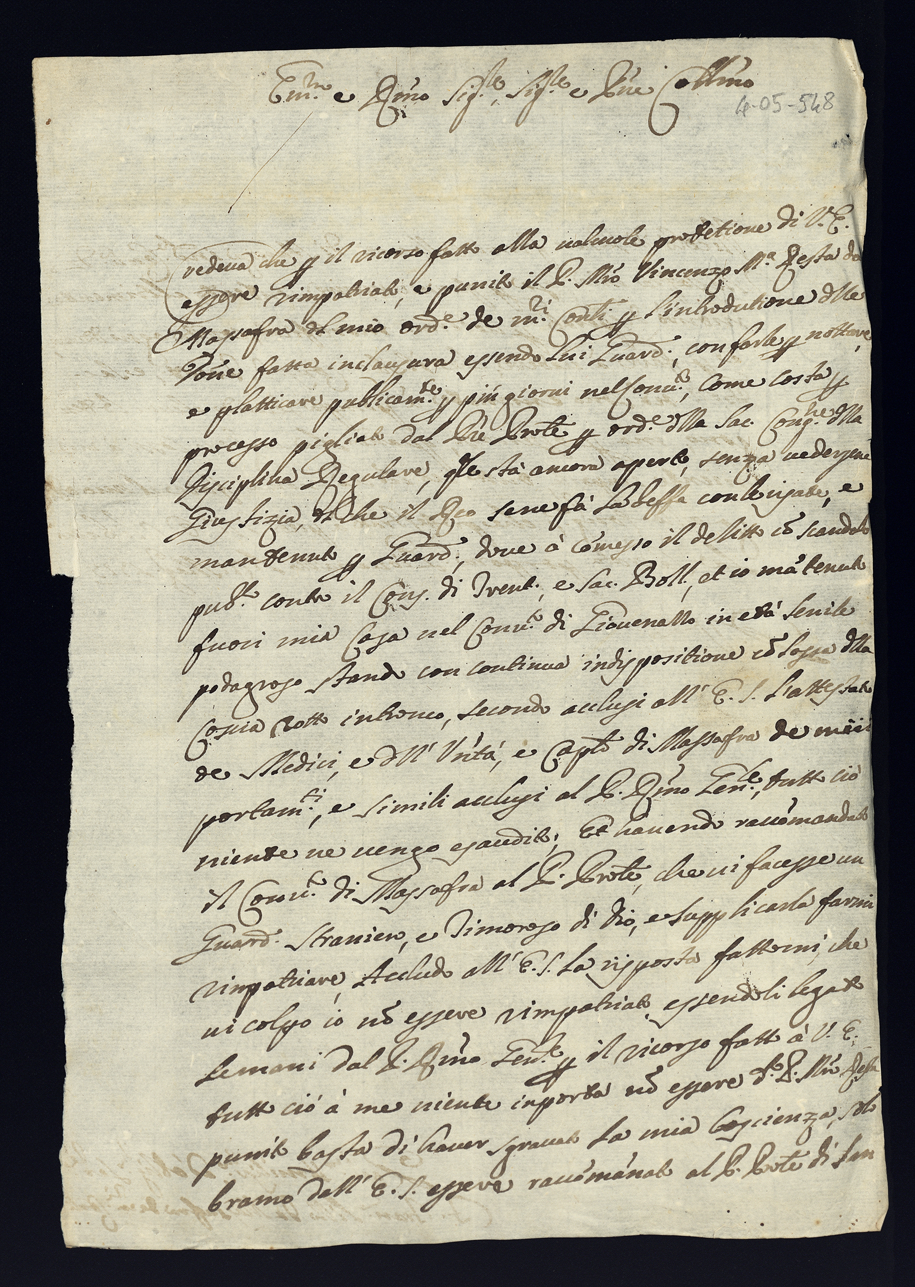 Em.mo e R.mo Sig.re, Sig.re e Pne Coll.mo
4-05-548
Credeva che p il ricorso fatto alla valevole protetione di V. E.
essere rimpatriato, e punito il P. Mro Vincenzo M.a Resta da
Massafra del mio ord.e de m.ri Conti p l'introdutione delle
Donne fatta in clausura essendo lui Guard., con farle p nottare,
e platticare publicam.te p più giorni nel Conv.to, come costa p
processo pigliato dal Pre Prole p ord.e della Sac. Cong.ne della
Disciplina Regulare, q.le stà ancora aperto, senza vedersene
Giustizia, et che il Reo sene fà la beffe con le risate, e
mantenuto p Guard., dove à comesso il delitto cõ scandolo
pub.co contro il Conc. di Trent., e Sac. Boll., et io mãtenuto
fuori mia Casa nel Conv.to di Giovenazzo in età senile
podagroso stando con continua indispositione cõ l'osso della
Coscia rotto in tronco, secondo acclusi all' E. S. l'attestato
de Medici, e dll' Unità, e Cap.lo di Massafra de miei
portam.ti, e simili acclusi al P. Rmo Gen.le, tutto ciò
niente ne vengo esaudito; Et havendo raccomandato
il Conv.to di Massafra al P. Prole, che vi facesse un
Guard. straniero, e Timoroso di Dio, e supplicarlo farmi
rimpatriare, Accludo all' E. S. la risposta fattami, che
vi colpo io nõ essere rimpatriato, essendoli legato
le mani dal P. Rmo Gen.le p il ricorso fatto à V. E.
tutto ciò à me niente importa nõ essere d.o P. Mro Resta
punito basta di haver sgravato la mia Coscienza, solo
bramo dall' E. S. essere raccomãnato al P. Prole di San